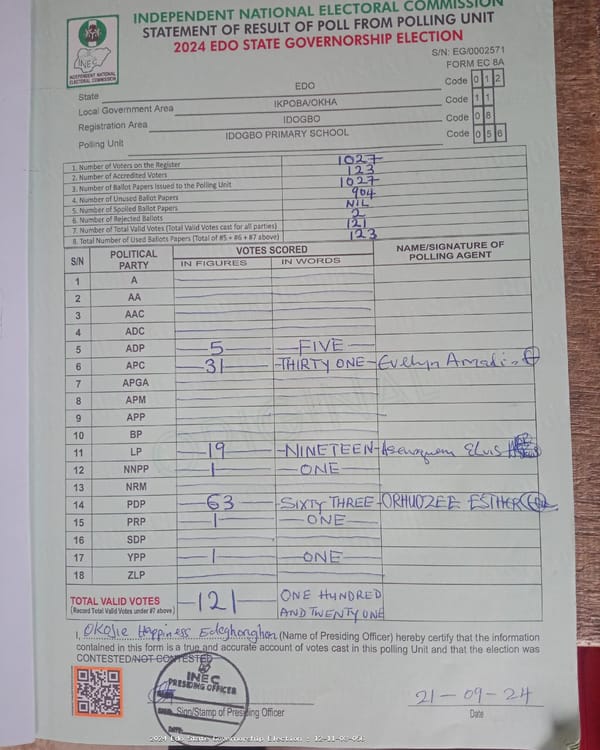 INDEPENDENT NATIONAL ELECTORAL COMMISSION
STATEMENT OF RESULT OF POLL FROM POLLING UNIT
2024 EDO STATE GOVERNORSHIP ELECTION
INEC
INDEPENDENT NATIONAL ELECTORAL COMMISSION
S/N: EG/0002571
FORM EC 8A
State EDO Code 0 1 2
Local Government Area IKPOBA/OKHA Code 1 1
Registration Area IDOGBO Code 0 8
Polling Unit IDOGBO PRIMARY SCHOOL Code 0 5 6
1. Number of Voters on the Register 1027
2. Number of Accredited Voters 123
3. Number of Ballot Papers Issued to the Polling Unit 1027
4. Number of Unused Ballot Papers 904
5. Number of Spoiled Ballot Papers NIL
6. Number of Rejected Ballots 2
7. Number of Total Valid Votes (Total Valid Votes cast for all parties) 121
8. Total Number of Used Ballots Papers (Total of #5 + #6 + #7 above) 123
S/N POLITICAL PARTY VOTES SCORED NAME/SIGNATURE OF POLLING AGENT
IN FIGURES IN WORDS
1 A
2 AA
3 AAC
4 ADC
5 ADP 5 FIVE
6 APC 31 THIRTY ONE Evelyn Amadin
7 APGA
8 APM
9 APP
10 BP
11 LP 19 NINETEEN Elvis
12 NNPP 1 ONE
13 NRM
14 PDP 63 SIXTY THREE ORHUOZEE ESTHER
15 PRP 1 ONE
16 SDP
17 YPP 1 ONE
18 ZLP
TOTAL VALID VOTES 121 ONE HUNDRED
(Record Total Valid Votes under #7 above) AND TWENTY ONE
I, Okojie Happiness Edeghonghon (Name of Presiding Officer) hereby certify that the information
contained in this form is a true and accurate account of votes cast in this polling Unit and that the election was
CONTESTED/NOT CONTESTED
INEC
PRESIDING OFFICER
Sign/Stamp of Presiding Officer
21-09-24
Date
2024 Edo State Governorship Election : 12-11-08-056